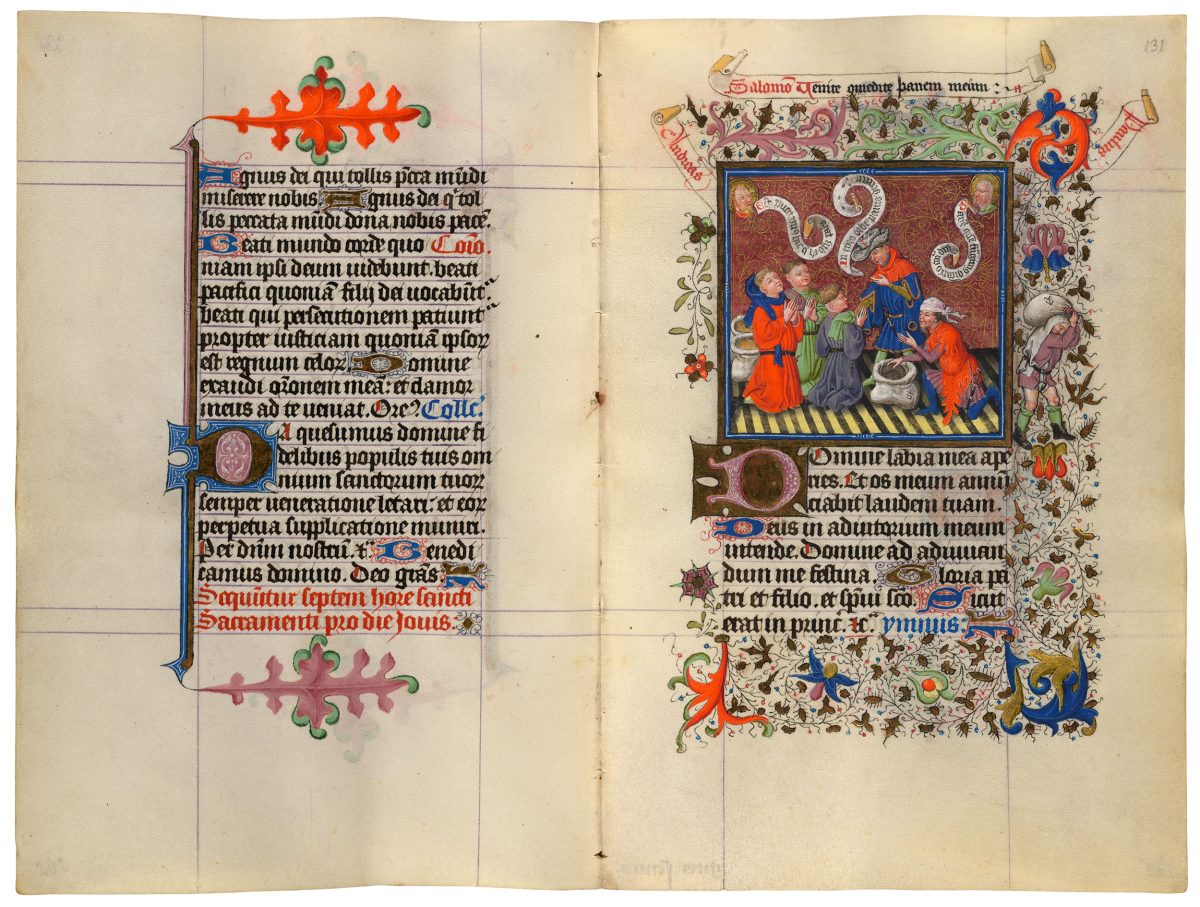 Agnus dei qui tollis pcca mūdi
miserere nobis Agnus dei q tol
lis peccata mūdi dona nobis pacē
Beati mundo corde quo Cōio
niam ipsi deum uidebunt. beati
pacifici quoniā filij dei uocabūt
beati qui persecutionem patiunt
propter iusticiam quoniā ipsoꝝ
est regnum celoꝝ Domine
exaudi orōnem meā: et clamor
meus ad te ueniat. Ore Colle
Da quesumus domine fi
delibus populis tuis om
nium sanctorum tuoꝝ
semper ueneratione letari: et eoꝝ
perpetua supplicatione muniri.
Per dnm nostrū. Benedi
camus domino. Deo grās
Sequūtur septem hore sancti
Sacramenti pro die Jouis.
131
Salomō Uenite quiedite panem meum:
Andreas
Paulus
Domine labia mea ape
ries. Et os meum annū
ciabit laudem tuam.
Deus in adiutorium meum
intende. Domine ad adiuuan
dum me festina. Gloria pa
tri et filio. et spūi scō. Sicut
erat in princ. ymnus: